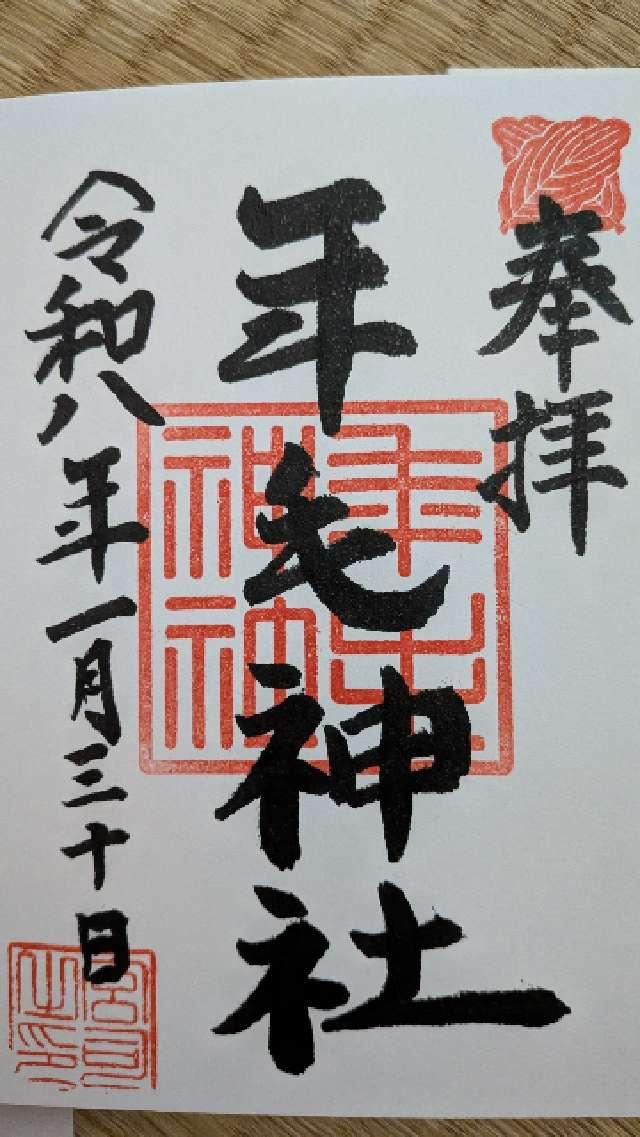 奉拝
年毛神社
令和八年一月三十日